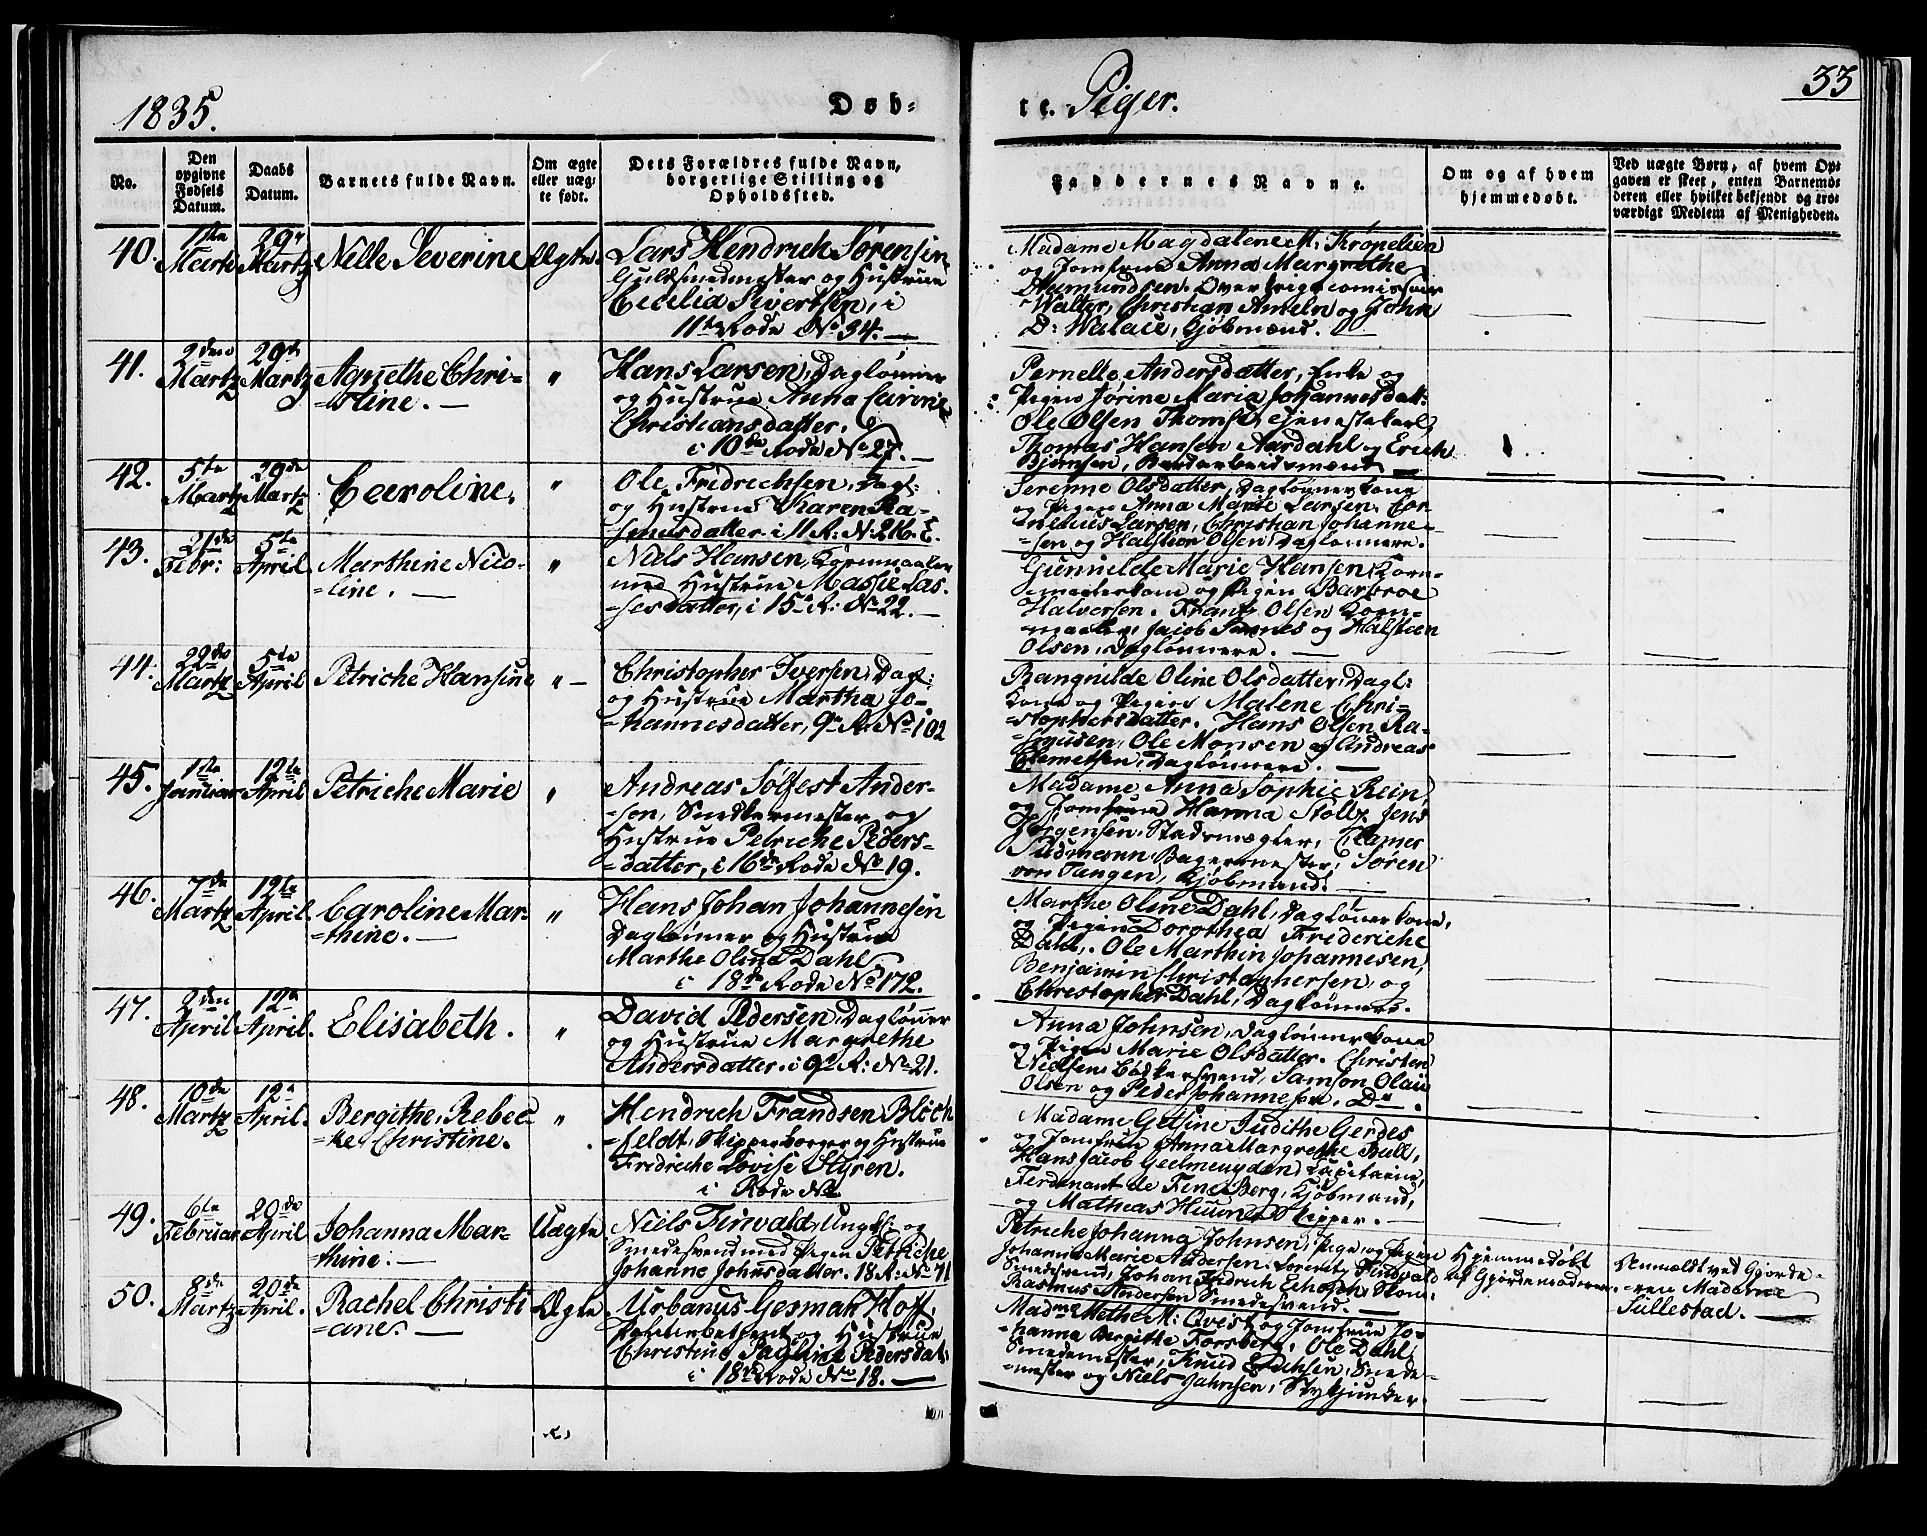 1835.
Døb-
te. Piger.
33
No.
Den opgivne Fødsels Datum.
Daabs Datum.
Barnets fulde Navn.
Om ægte eller uæg- te født.
Dets Forældres fulde Navn, borgerlige Stilling og Opholdssted.
Faddernes Navne.
Om og af hvem hjemmedøbt.
Ved uægte Børn, af hvem Op-
gaven er skeet, enten Barnemo-
deren eller hvilket bekjendt og tro-
værdigt Medlem af Menigheden.
40. 1ste Martz 29de Martz Nille Severine Ægte.
Lars Hendrich Sørensen
Guldsmedmester og Hustrue
Cecilia Sivertsen, i
11te Rode No 34.
Madame Magdalene M: Krøpelien
og Jomfrue Anna Margrethe
Walter, Christian Ameln og John
D: Walace, Kjøbmænd.
41. 2den Martz 29de Martz Agnethe Chri-
=stine. "
Hans Larsen, Daglønner
og Hustrue Anna Carine
Christiansdatter,
i 10de Rode No 27.
Pernelle Andersdatter, Enke og
Pigen Jørine Maria Johannesdatt:
Ole Olsen Thomse, Tjenestekarl,
Thomas Hansen Aardahl og Erich
42. 5te Martz 29de Martz Caroline, "
Ole Fridrichsen, Dagl:
og Hustrue Karen Ra-
smusdatter i 11 R: N: 216. E.
Serenne Olsdatter, Daglønnerkone
og Pigen Anna Marie Larsen, Cor-
nelius Larsen, Christian Johanne-
=sen og Halsteen Olsen, Daglønnere.
43. 21de Febr: 5te April Marthine Nico-
=line. "
Niels Hansen, Kornmaaler
med Hustrue Massie Las-
=sesdatter, i 15de R: No 22.
Gunnilde Marie Hansen, Korn-
=maalerkone og Pigen Barbroe
Halversen. Frantz Olsen Korn-
=maaler, Jacob Sennes og Halsteen
Olsen, Daglønnere.
44. 22de Martz 5te April Petriche Hansine "
Christopher Iversen, Dagl:
og Hustrue Martha Jo-
=hannesdatter, 9de R: No 102
Rangnilde Oline Olsdatter, Dagl:
Kone og Pigen Malene Chri-
=stophersdatter. Hans Olsen Ra-
=smusen, Ole Monsen og Andreas
Clemetsen, Daglønnere.
45. 1ste Januar 12te April Petriche Marie "
Andreas Sølfest Ander-
=sen, Snedkermester og
Hustrue Petriche Peders-
=datter, i 16de Rode No 19.
Madame Anna Sophie Rein
og Jomfrue Hanna Stoltz, Jens
Jørgensen, Stadsmægler, Clamer
Sudmann Bagermester, Søren
von Tangen, Kjøbmand.
46. 7de Martz 12te April Caroline Mar-
=thine. "
Hans Johan Johannesen
Daglønner og Hustrue
Marthe Olina Dahl,
i 18de Rode No 172.
Marthe Oline Dahl, Dagløner kone,
og Pigen Dorothea Frederiche
Dahl. Ole Marthin Johannesen,
Benjamin Christophersen, og
Christopher Dahl, Daglønnere.
47. 2den April 12te April. Elisabeth. "
David Pedersen, Dagløner
og Hustrue Margrethe
Andersdatter, i 9de R: No 21.
Anna Johnsen, Dagløner kone
og Pigen Marie Olsdatter. Christen
Nielsen Bødkersvend, Samson Olaus
Olsen og Peder Johannesen, Do.
48. 10de Martz 12te April. Bergithe, Rebec-
=ke Christine. "
Hendrich Frandsen Bloch
=feldt, Skipperborger og Hustrue
Fridriche Lovise Styren.
i Rode No
Madame Gesine Judithe Gerdes
og Jomfrue Anna Margrethe Bull,
Hans Jacob Geelmeuyden, Capitaine,
Ferdinant de Fine Berg, Kjøbmand,
og Mathias Huun Skipper.
49. 6te Februar 20de April Johanna Mar-
thine. Uægte
Niels Tinvald, Ungk: og
Smedesvend med Pigen Petriche
Johanne Johnsdatter. 18 R: No 71
Petriche Johanna Johnsen, Pige, og Pigen
Johanne Marie Andersen. Lorentz Tindvald
Smedesvend, Johan Fridrich
Rasmus Andersen Smedesvend.
Hjemmedøbt
af Gjordemoderen
Anmeldt ved Gjorde-
=ren Madame
Sullestad.
50. 8de Martz 20de April. Rachel Christi
=ane. Ægte
Urbanus Gesmak Hoff,
Politiebetjent og Hustrue
Christine Pauline Pedersdat:
i 18de Rode No 18.
Madme Methe M: Qvist og Jomfrue Jo-
hanna Bergitte Forsberg, Ole Dahl,
Smedemester, Knud Erichsen, Smede-
=mester og Niels Jahnsen, Stykjunker.